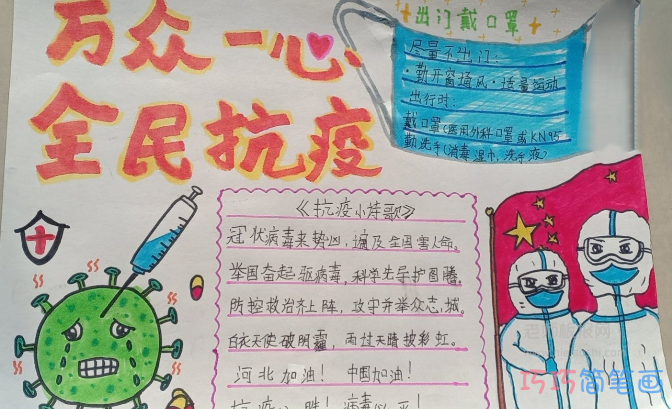 万众一心
全民抗疫
出门戴口罩
尽量不出门:
·勤开窗通风·适量运动
出行时:
戴口罩(医用外科口罩或KN95
勤洗手(消毒湿巾,洗手液)
《抗疫小诗歌》
冠状病毒来势凶,遍及全国害人命。
举国奋起驱病毒,科学先导护图腾。
防控救治齐上阵,攻守并举众志城。
白衣天使破阴霾,雨过天晴披彩虹。
河北加油! 中国加油!
抗疫必胜!病毒必
巧巧简笔画